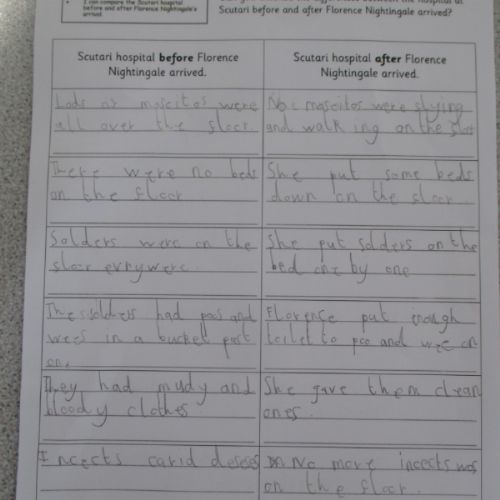 I can compare the Scutari hospital
before and after Florence Nightingale's
arrival.
Scutari before and after Florence Nightingale arrived?
Scutari hospital before Florence
Nightingale arrived.
Scutari hospital after Florence
Nightingale arrived.
Lods of moscitos were
all over the floor
No moscitos were flying
and walking on the floor
There were no beds
on the floor
She put some beds
down on the floor.
Solders were on the
floor evrywere
She put solders on the
bed one by one
The solders had poos and
wees in a bucket
on.
Florence put enough
toilet to poo and wee on
They had mudy and
bloody clothes
She gave them clean
ones.
Incects carid deseses
No more incects was
on the floor